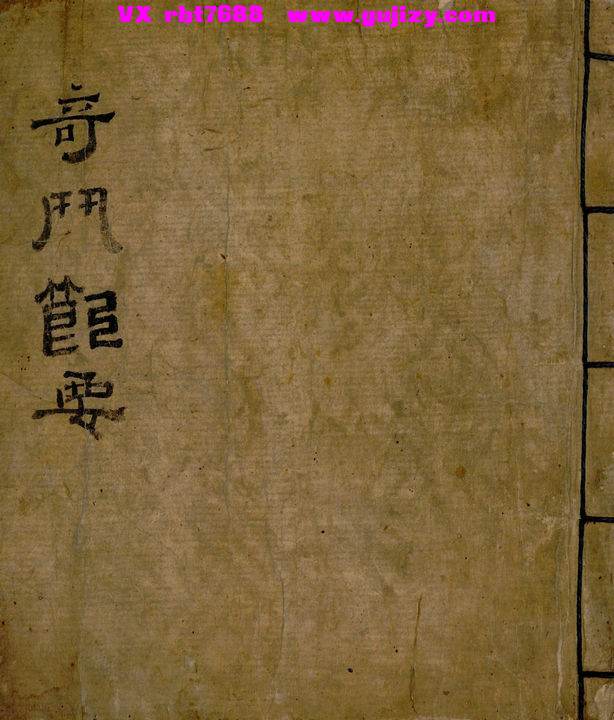 VX rbt7688 www.gujizy.com
奇門節要